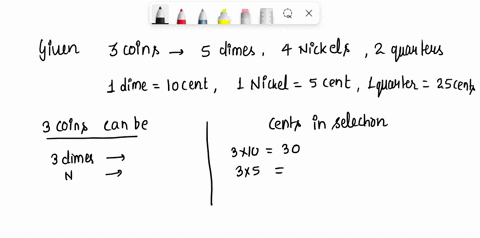 Given 3 coins → 5 dimes, 4 Nickels, 2 quarters
1 dime = 10 cent, 1 Nickel = 5 cent, 1 quarter = 25 cents
3 coins can be
3 dimes →
N →
cents in selection
3×10 = 30
3×5 =